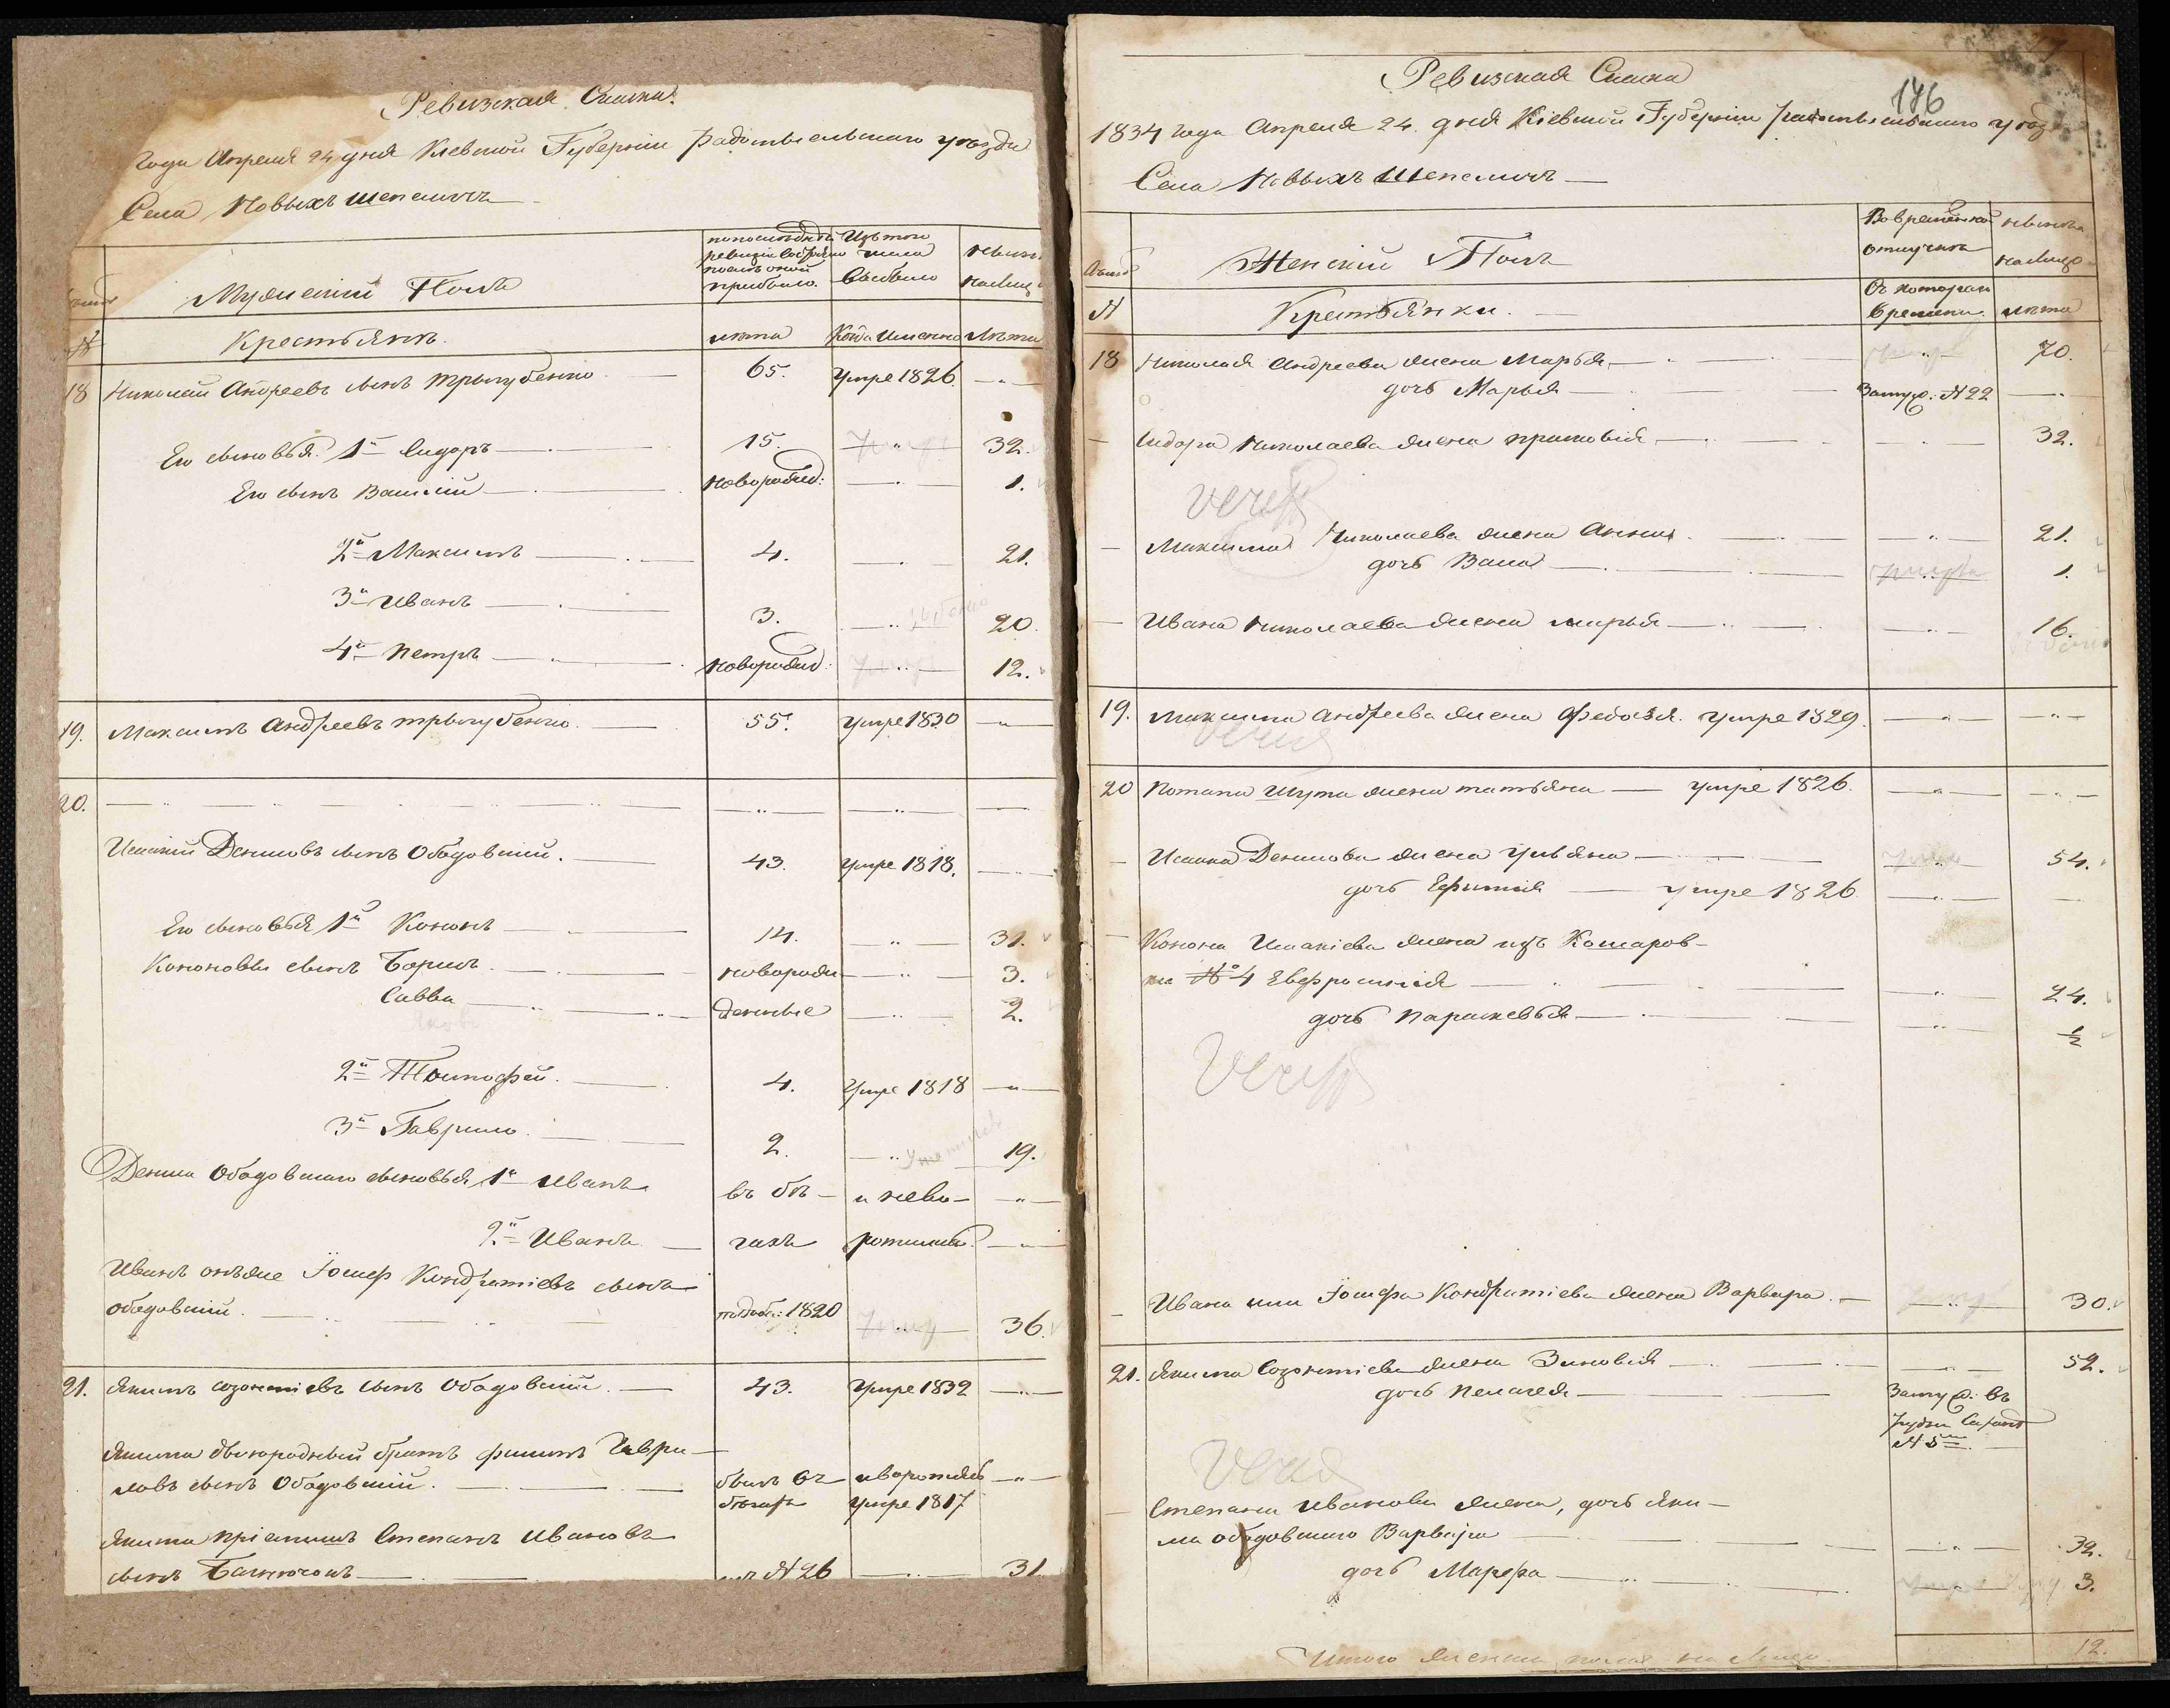 Ревизская Сказка.
Года Апреля 24 дня Киевской Губернии Радомысльскаго уезда
Села Новыхъ Шепеличъ
Мужеский Полъ
по последней ревизіи состояло и после оной прибыло.
Изъ того числа выбыло
ныне на лицо
№
Крестьянъ.
лета
Когда именно
Лета
18 Николай Андреевъ сынъ Трыгубенко 65. умре 1826
Его сыновья 1й Сидоръ 15. 32.
Его сынъ Василій новорожд: 1.
2й Максимъ 4. 21.
3й Иванъ 3. 20
4й Петръ новорожд: 12.
19. Максимъ Андреевъ трыгубенко. 55. умре 1830
20.
Исакий Денисовъ сынъ Ободовский. 43. умре 1818.
Его сыновья 1й Кононъ 14. 31.
Кононовы сынъ Борисъ новорожде 3.
Савва денные 2.
2й Тимофей. 4. умре 1818
3й Гаврило 2. 19.
Дениса Ободовскаго сыновья 1й Иванъ въ бе- и нево-
2й Иванъ гахъ ротились
Иванъ онъже Іосиф Кондратіевъ сынъ
ободовский. 1820 36.
21. Якимъ созонтіевъ сынъ Ободовский. 43. умре 1832
Якима двоюродный братъ филипъ Гаври-
ловъ сынъ Ободовский. былъ въ
бегахъ умре 1817
Якима пріемышъ Степанъ Ивановъ
сынъ №26 31
Ревизская Сказка
176
1834 года Апреля 24. дня Кіевской Губерніи Радомысльскаго уезда
Села Новыхъ Шепеличъ
Женский Полъ
Во временной отлучке
ныне на лицо
№
Крестьянки.
Съ котораго времени.
лета
18 Николая Андреева жена Марья 70.
дочь Марья Замуж: №22
Сидора Николаева жена 32.
Максима Николаева жена Анна 21.
дочь Васса 1.
Ивана Николаева жена марья 16.
19. Максима Андреева жена Федосья. умре 1829.
20 Потапа Шута жена татьяна умре 1826.
Исакия Денисова жена Ульяна 54.
дочь Ефимия умре 1826
Конона Исакіева жена изъ Комаров-
ка №4 Евфросинія 24.
дочь Параскевья ½
Ивана или Іосифа Кондратіева жена Варвара 30.
21. Якима Созонтіева жена Зиновія 52.
дочь Пелагея Замуж: въ
№5
Степана Иванова жена, дочь Яки-
ма ободовскаго Варвара 32.
дочь Марфа 3.
Итого женска пола на лицо 12.